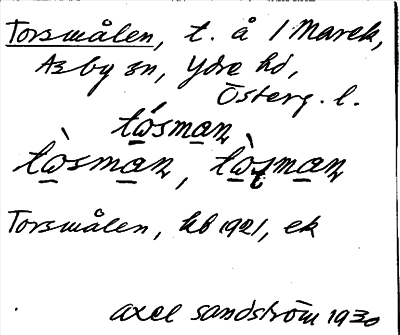 Torsmålen, t. å / Marek,
Asby sn, Ydre hd,
Österg. l.
tósman
tòsman, tòsman
Torsmålen, kb 1921, ek
Axel Sandström 1930